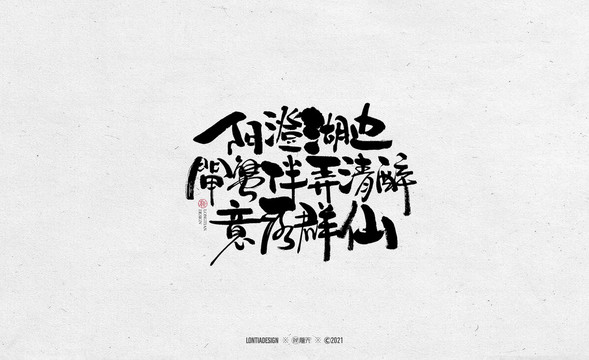 阳澄湖边
閘蟹伴弄清醉
意群仙
LONTIADESIGN ※ ※ ©2021